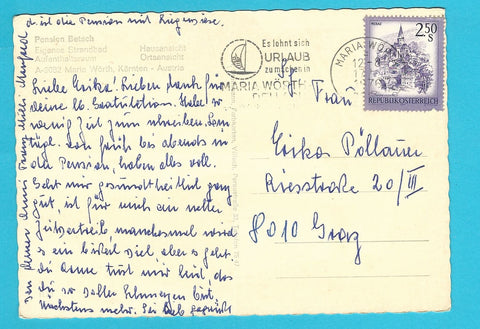 d. ist die Pension mit Liegewiese.
Pension Betsch
Eigener Strandbad Hausansicht
Aufenthaltsraum Ortsansicht
A-9082 Maria Wörth, Kärnten - Austria
Liebe Erika! Lieben Dank für
deine lb. Gratulation. Habe so
wenig Zeit zum schreiben. Bin
von früh bis abends in
der Pension, haben alles voll.
Geht mir gesundheitlich ganz
gut, ist für mich ein netter
Zeitvertreib manchesmal wird
es ein bißerl viel, aber es geht.
du Arme tust mir leid, das
du so voller Schmerzen bist
nächstens mehr. Sei lieb gegrüßt
von deiner
Es lohnt sich
URLAUB
zu machen in
MARIA WÖRTH
MARIA WÖRTH
2.50
S
REPUBLIK ÖSTERREICH
Frau
Erika Pöllauer
Riesstraße 20/III
8010 Graz